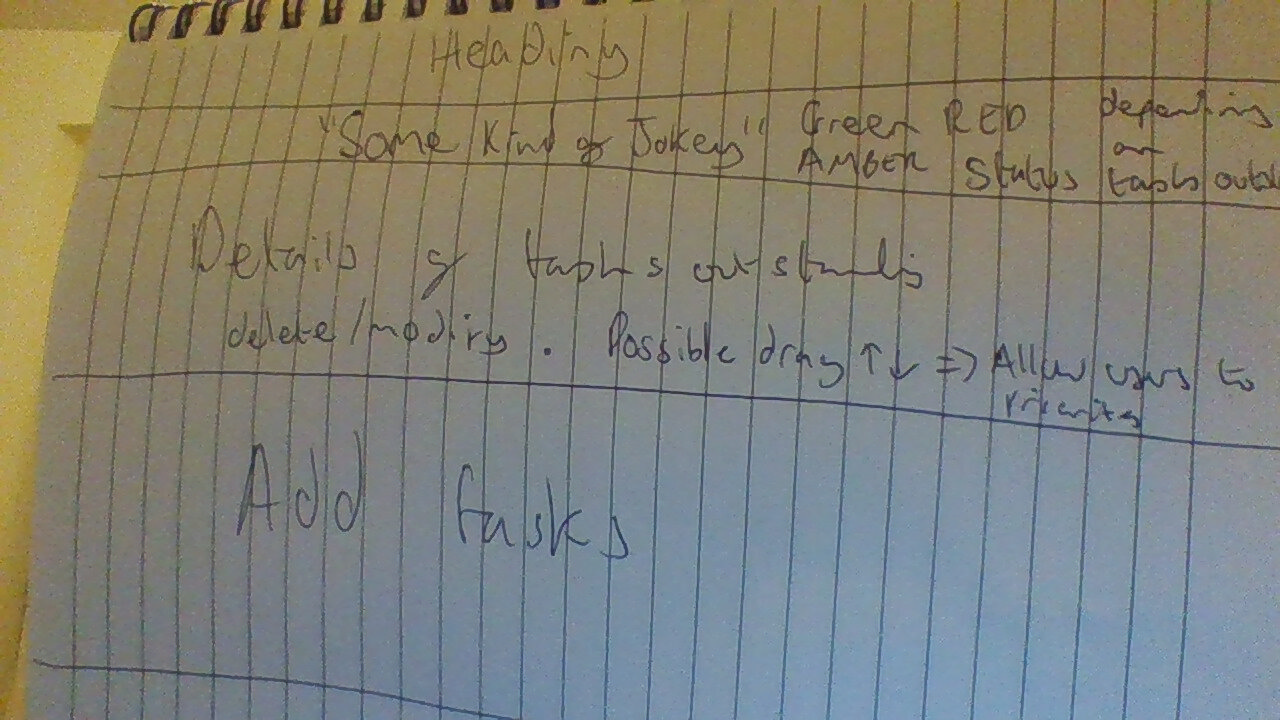 Heading
"Some Kind of Jokey" Green RED depending
AMBER Status on
tasks outst
Details of tasks outstanding
delete/modify. Possible drag ↑↓ => Allow users to
Prioritys
Add tasks